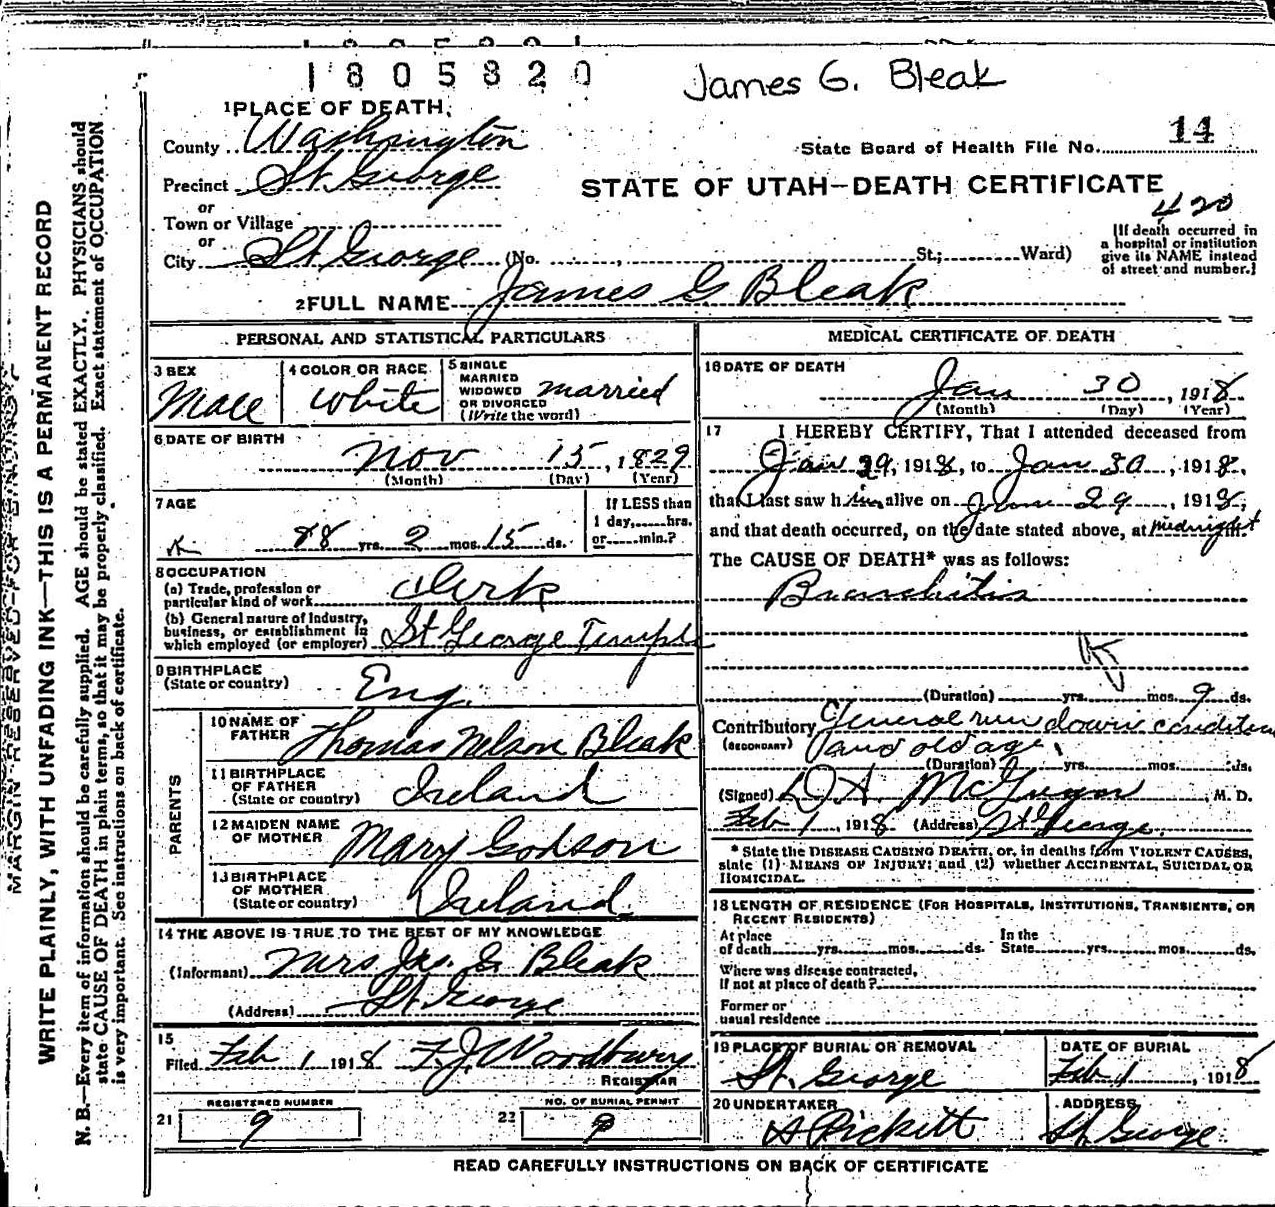 1805820
James G. Bleak
1 PLACE OF DEATH,
County Washington
State Board of Health File No. 14
Precinct St George
STATE OF UTAH—DEATH CERTIFICATE
or
Town or Village
420
or
City St George (No. St.; Ward)
[If death occurred in
a hospital or institution
give its NAME instead
of street and number.]
2 FULL NAME James G Bleak
PERSONAL AND STATISTICAL PARTICULARS
3 SEX
Male
4 COLOR OR RACE
White
5 SINGLE
MARRIED
WIDOWED
OR DIVORCED
(Write the word)
married
6 DATE OF BIRTH
Nov 15, 1829
(Month) (Day) (Year)
7 AGE
88 yrs. 2 mos. 15 ds.
If LESS than
1 day, hrs.
or min.?
8 OCCUPATION
(a) Trade, profession or
particular kind of work Clerk
(b) General nature of industry,
business, or establishment in
which employed (or employer) St George Temple
9 BIRTHPLACE
(State or country) Eng.
PARENTS
10 NAME OF
FATHER Thomas Nelson Bleak
11 BIRTHPLACE
OF FATHER
(State or country) Ireland
12 MAIDEN NAME
OF MOTHER Mary Godson
13 BIRTHPLACE
OF MOTHER
(State or country) Ireland.
14 THE ABOVE IS TRUE TO THE BEST OF MY KNOWLEDGE
(Informant) Mrs Jas. G. Bleak
(Address) St George
15
Filed Feb 1 1918 F. J. Woodbury
REGISTRAR
21 REGISTERED NUMBER
9
22 NO. OF BURIAL PERMIT
9
MEDICAL CERTIFICATE OF DEATH
16 DATE OF DEATH
Jan 30, 1918
(Month) (Day) (Year)
17 I HEREBY CERTIFY, That I attended deceased from
Jan 29, 1918, to Jan 30, 1918,
that I last saw him alive on Jan 29, 1918,
and that death occurred, on the date stated above, at midnight m.
The CAUSE OF DEATH* was as follows:
Bronchitis
(Duration) yrs. mos. 9 ds.
Contributory General run down condition
(SECONDARY) and old age.
(Duration) yrs. mos. ds.
(Signed) D. A. McGregor, M. D.
Feb 1, 1918 (Address) St George.
* State the DISEASE CAUSING DEATH, or, in deaths from VIOLENT CAUSES,
state (1) MEANS OF INJURY; and (2) whether ACCIDENTAL, SUICIDAL OR
HOMICIDAL.
18 LENGTH OF RESIDENCE (FOR HOSPITALS, INSTITUTIONS, TRANSIENTS, OR
RECENT RESIDENTS)
At place
of death yrs. mos. ds.
In the
State yrs. mos. ds.
Where was disease contracted,
If not at place of death?
Former or
usual residence
19 PLACE OF BURIAL OR REMOVAL
St. George
DATE OF BURIAL
Feb 1, 1918
20 UNDERTAKER
A Pickett
ADDRESS
St George
READ CAREFULLY INSTRUCTIONS ON BACK OF CERTIFICATE
MARGIN RESERVED FOR BINDING
WRITE PLAINLY, WITH UNFADING INK—THIS IS A PERMANENT RECORD
N. B.—Every item of information should be carefully supplied. AGE should be stated EXACTLY. PHYSICIANS should
state CAUSE OF DEATH in plain terms, so that it may be properly classified. Exact statement of OCCUPATION
is very important. See instructions on back of certificate.